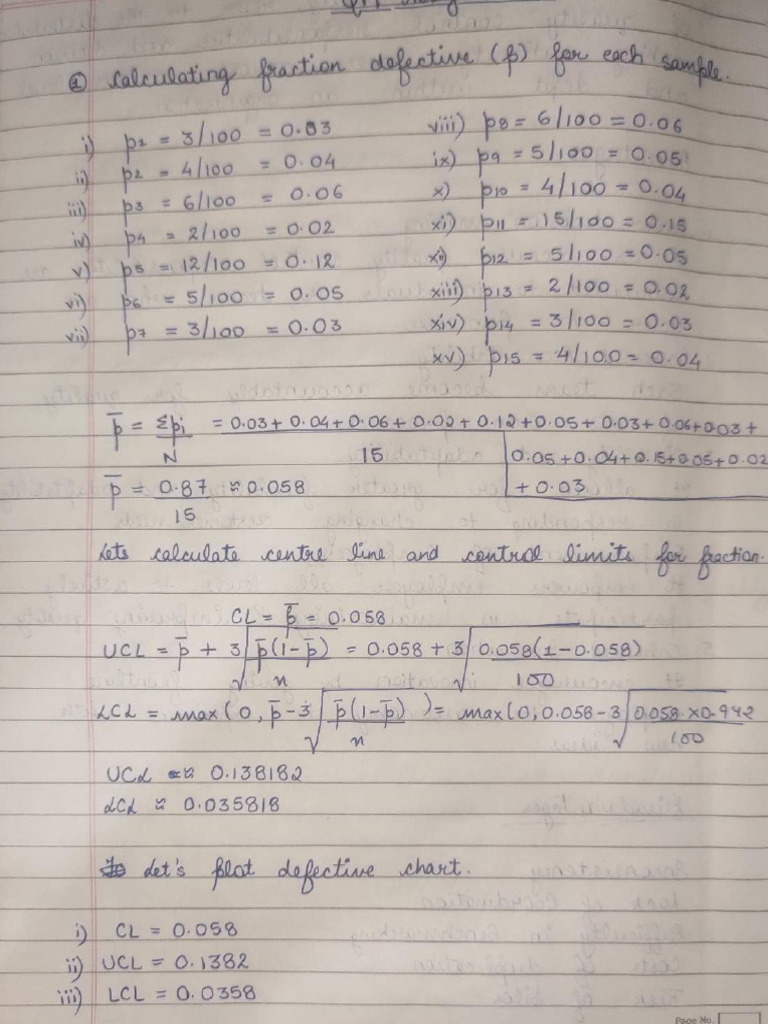 ① Calculating fraction defective (p) for each sample.
i) p1 = 3/100 = 0.03
ii) p2 = 4/100 = 0.04
iii) p3 = 6/100 = 0.06
iv) p4 = 2/100 = 0.02
v) p5 = 12/100 = 0.12
vi) p6 = 5/100 = 0.05
vii) p7 = 3/100 = 0.03
viii) p8 = 6/100 = 0.06
ix) p9 = 5/100 = 0.05
x) p10 = 4/100 = 0.04
xi) p11 = 15/100 = 0.15
xi) p12 = 5/100 = 0.05
xiii) p13 = 2/100 = 0.02
xiv) p14 = 3/100 = 0.03
xv) p15 = 4/100 = 0.04
p̄ = Σpi = 0.03+0.04+0.06+0.02+0.12+0.05+0.03+0.06+0.03+
N 15 0.05+0.04+0.15+0.05+0.02
p̄ = 0.87 ≈ 0.058 +0.03
15
Lets calculate centre line and control limits for fraction.
CL = p̄ = 0.058
UCL = p̄ + 3√p̄(1-p̄) = 0.058 + 3√0.058(1-0.058)
n 100
LCL = max(0, p̄-3√p̄(1-p̄) )= max(0, 0.058-3√0.058×0.942
n 100
UCL ≈ 0.138182
LCL ≈ 0.035818
Let's plot defective chart.
i) CL = 0.058
ii) UCL = 0.1382
iii) LCL = 0.0358
Page No.